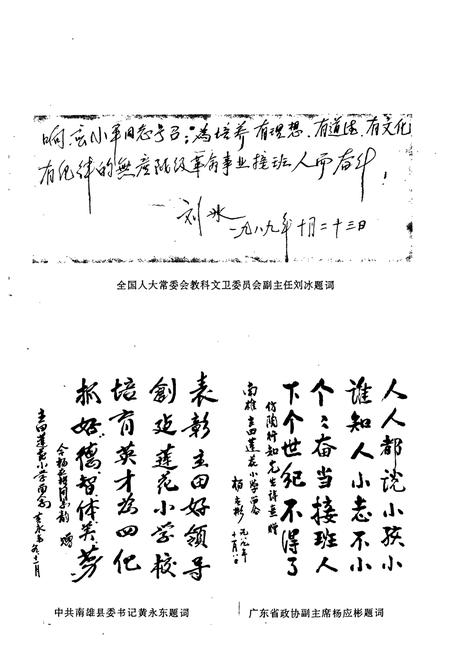 响应小平同志号召：为培养有理想、有道德、有文化
有纪律的無产阶级革命事业接班人而奋斗！
刘冰
一九八九年十月二十三日
全国人大常委会教科文卫委员会副主任刘冰题词
人人都说小孩小
谁知人小志不小
个个奋当接班人
下个世纪不得了
仿陶行知先生诗意赠
南雄主田莲花小学
杨应彬 一九八九年
中共南雄县委书记黄永东题词
表彰主田好领导
創建莲花小学校
培育英才为四化
抓好德智体美劳
主田莲花小学
广东省政协副主席杨应彬题词